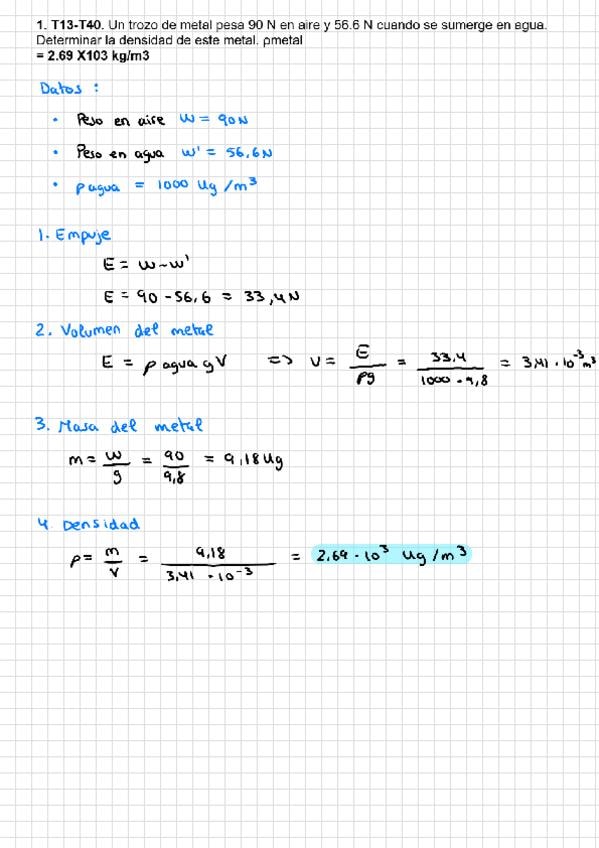 1. T13-T40. Un trozo de metal pesa 90 N en aire y 56.6 N cuando se sumerge en agua.
Determinar la densidad de este metal. ρmetal
= 2.69 X103 kg/m3
Datos :
• Peso en aire W = 90N
• Peso en agua W' = 56,6N
• ρ agua = 1000 Kg/m³
1. Empuje
E = W - W'
E = 90 - 56,6 = 33,4N
2. Volumen del metal
E = ρ agua g V => V = E/ρg = 33,4/(1000 · 9,8) = 3,41 · 10⁻³ m³
3. Masa del metal
m = W/g = 90/9,8 = 9,18 Kg
4. Densidad
ρ = m/V = 9,18/(3,41 · 10⁻³) = 2,69 · 10³ Kg/m³